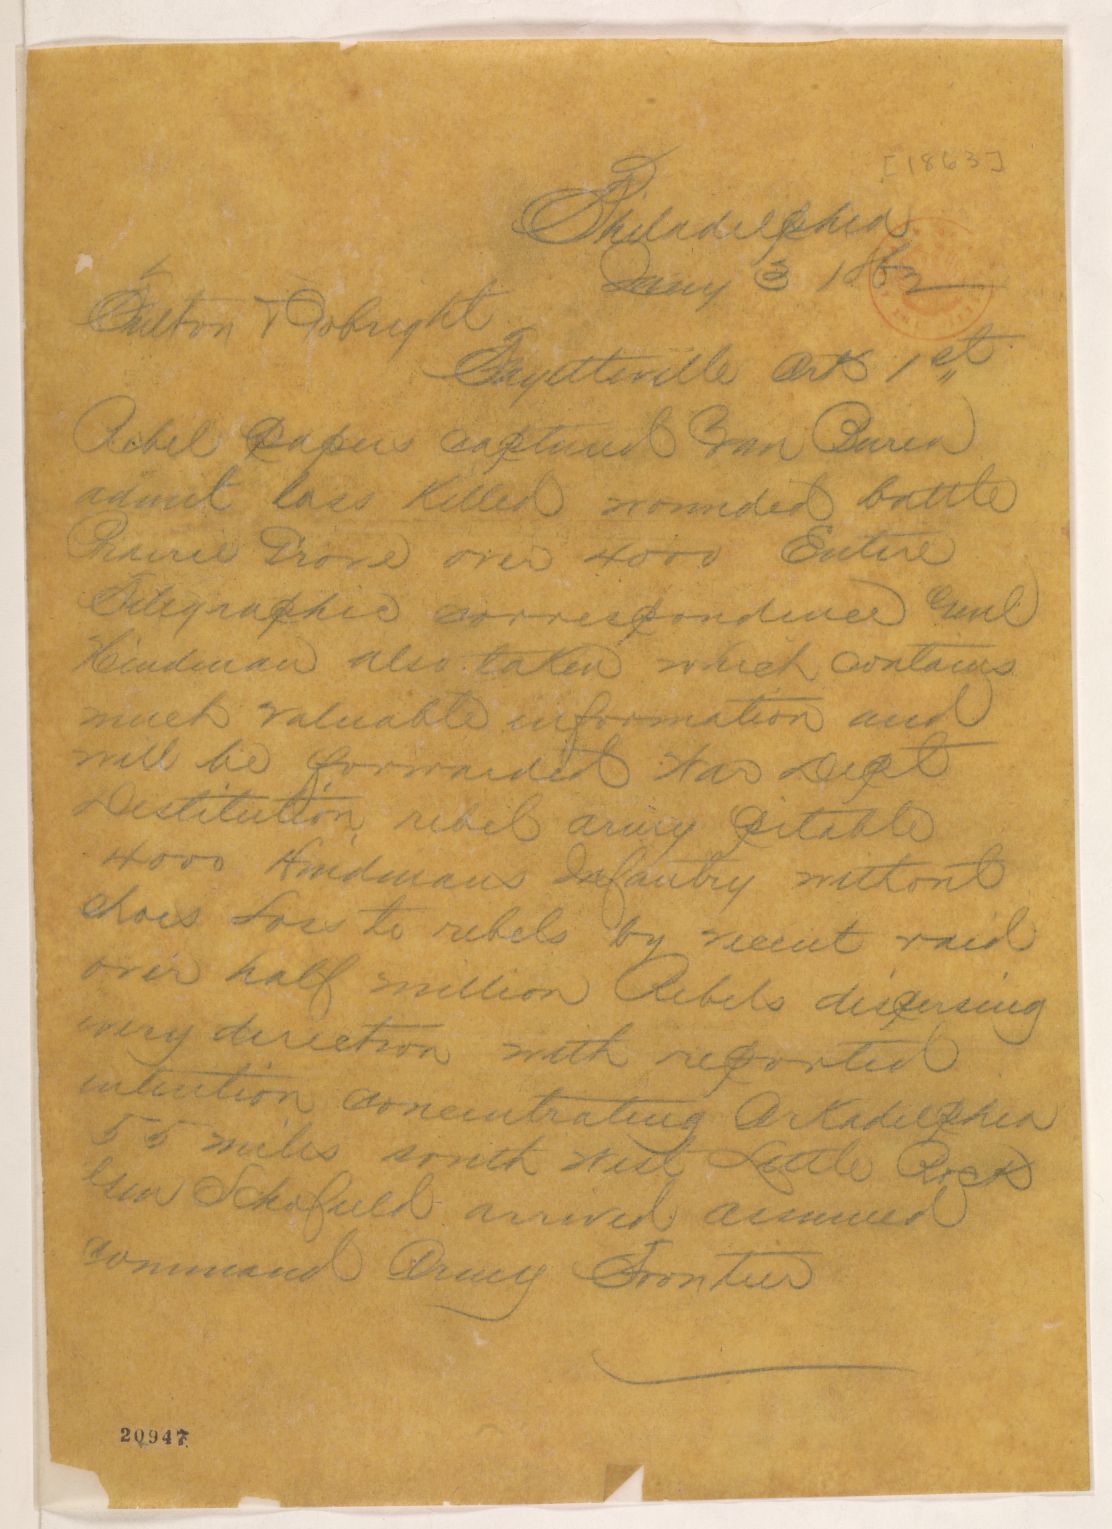 [1863]
Philadelphia
Jany 3 1862
Fulton & Gobright
Fayetteville Ark 1st
Rebel papers captured Van Buren
admit loss killed wounded battle
Prairie Grove over 4000 Entire
Telegraphic correspondence Genl
Hindman also taken which contains
much valuable information and
will be forwarded War Dept
Destitution rebel army pitable
4000 Hindmans Infantry without
shoes Loss to rebels by recent raid
over half million Rebels dispersing
every direction with reported
intention concentrating Arkadelphia
55 miles south west Little Rock
Gen Schofield arrived assumed
command Army Frontier
20947